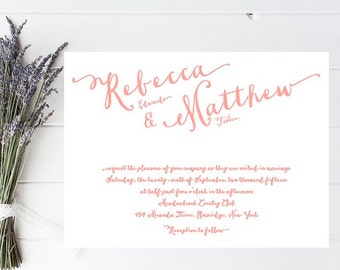 Rebecca
Edwards
& Matthew
Foster
request the pleasure of your company as they are united in marriage
Saturday, the twenty-sixth of September, two thousand fifteen
at half-past four o'clock in the afternoon
Meadowbrook County Club
Drive, New York
Reception to follow